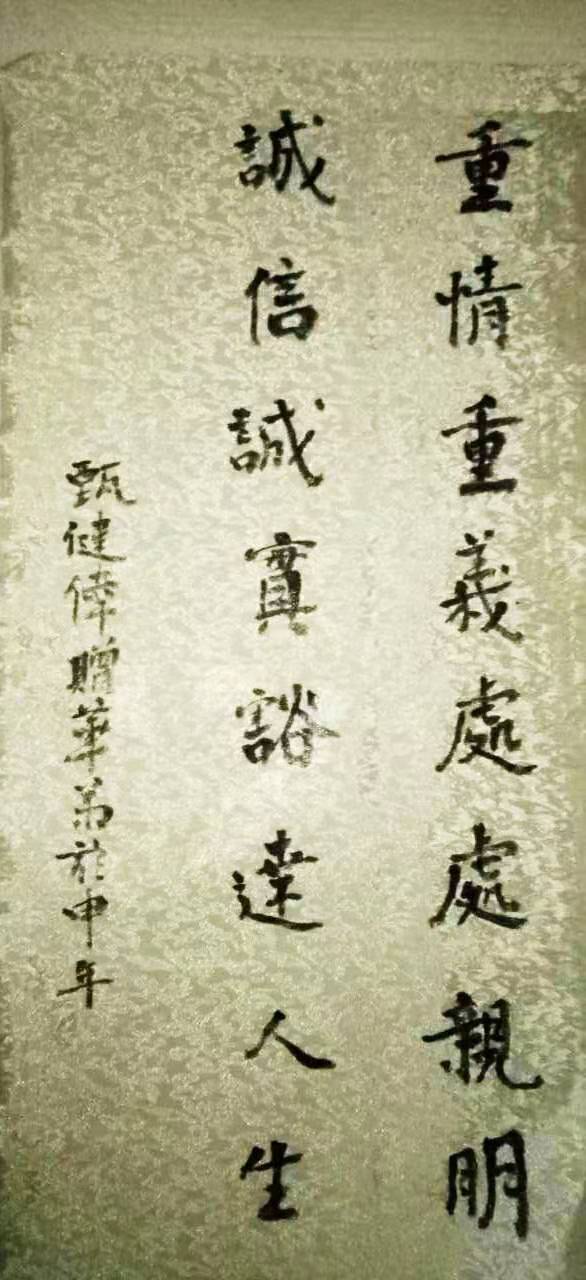 重情重義處處親朋
誠信誠實豁達人生
甄健偉贈華弟於申年